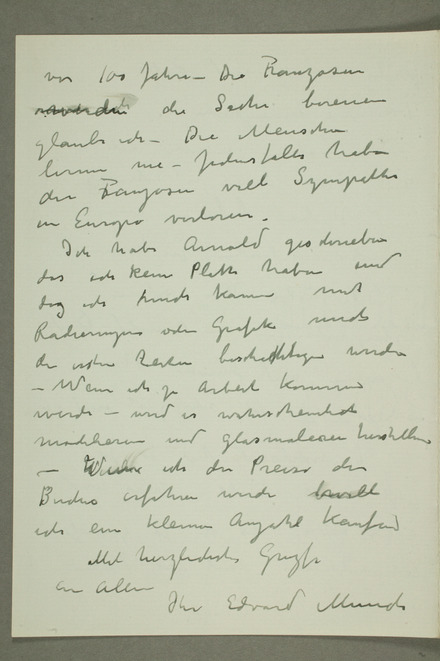 vor 100 Jahre – Die Franzosen
die Sache bereuen
glaube ich – Die Menschen
lernen nie – Jedenfalls haben
die Franzosen viel Sympathi
in Europa verloren.
Ich habe Arnold geschrieben
das ich kein Platte haben und
dag ich kaum mit
Radierungen oder Grafik
die erste Zeiten beschäftigen werde
– Wenn ich zu Arbeit kommen
werde – wird es wahrscheinlich
modelieren und glasmaleren
– Wenn ich die Preise der
erfahren werde
ich ein kleine Anzahl kaufen
Mit herzlichste Grüsse
an Allen
Ihr Edvard Munch